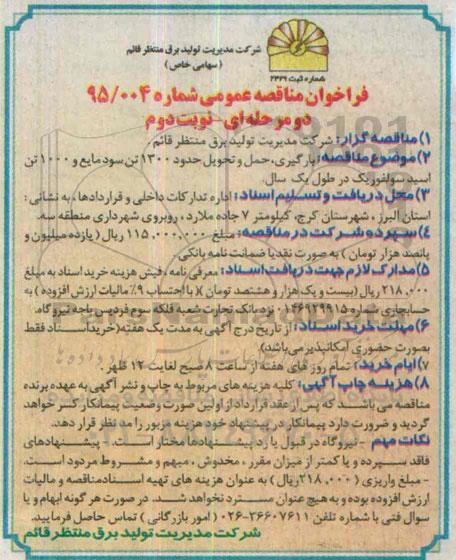 شرکت مدیریت تولید برق منتظر قائم
(سهامی خاص)
شماره ثبت ۲۳۲۹
فراخوان مناقصه عمومی شماره ۹۵/۰۰۴
دو مرحله‌ای - نوبت دوم
۱) مناقصه گزار: شرکت مدیریت تولید برق منتظر قائم
۲) موضوع مناقصه: بارگیری، حمل و تحویل حدود ۱۳۰۰ تن سود مایع و ۱۰۰۰ تن
اسید سولفوریک در طول یک سال.
۳) محل دریافت و تسلیم اسناد: اداره تدارکات داخلی و قراردادها، به نشانی:
استان البرز، شهرستان کرج، کیلومتر ۷ جاده ملارد، روبروی شهرداری منطقه سه.
۴) سپرده شرکت در مناقصه: مبلغ ۱۱۵,۰۰۰,۰۰۰ ریال (یازده میلیون و
پانصد هزار تومان) به صورت نقد یا ضمانت نامه بانکی
۵) مدارک لازم جهت دریافت اسناد: معرفی نامه، فیش هزینه خرید اسناد به مبلغ
۲۱۸,۰۰۰ ریال (بیست و یک هزار و هشتصد تومان) (با احتساب ۹٪ مالیات ارزش افزوده) به
حسابجاری شماره ۱۴۶۹۲۹۹۱۵ نزد بانک تجارت شعبه فلکه سوم فردیس باجه نیروگاه.
۶) مهلت خرید اسناد: از تاریخ درج آگهی به مدت یک هفته (خرید اسناد فقط
بصورت حضوری امکانپذیر می‌باشد).
۷) ایام خرید: تمام روز های هفته از ساعت ۸ صبح لغایت ۱۲ ظهر.
۸) هزینه چاپ آگهی: کلیه هزینه های مربوط به چاپ و نشر آگهی به عهده برنده
مناقصه می باشد که پس از عقد قرارداد از اولین صورت وضعیت پیمانکار کسر خواهد
گردید و ضرورت دارد پیمانکار در پیشنهاد خود هزینه مزبور را مد نظر قرار دهد.
نکات مهم - نیروگاه در قبول یا رد پیشنهادها مختار است. - پیشنهادهای
فاقد سپرده و یا کمتر از میزان مقرر، مخدوش، مبهم و مشروط مردود است.
- مبلغ واریزی (۲۱۸,۰۰۰ ریال) به عنوان هزینه های تهیه اسناد مناقصه و مالیات
ارزش افزوده بوده و به هیچ عنوان مسترد نخواهد شد. در صورت هر گونه ابهام و یا
سوال فنی با شماره تلفن ۳۶۶۰۷۶۱۱-۰۲۶ (امور بازرگانی) تماس حاصل فرمایید.
شرکت مدیریت تولید برق منتظر قائم